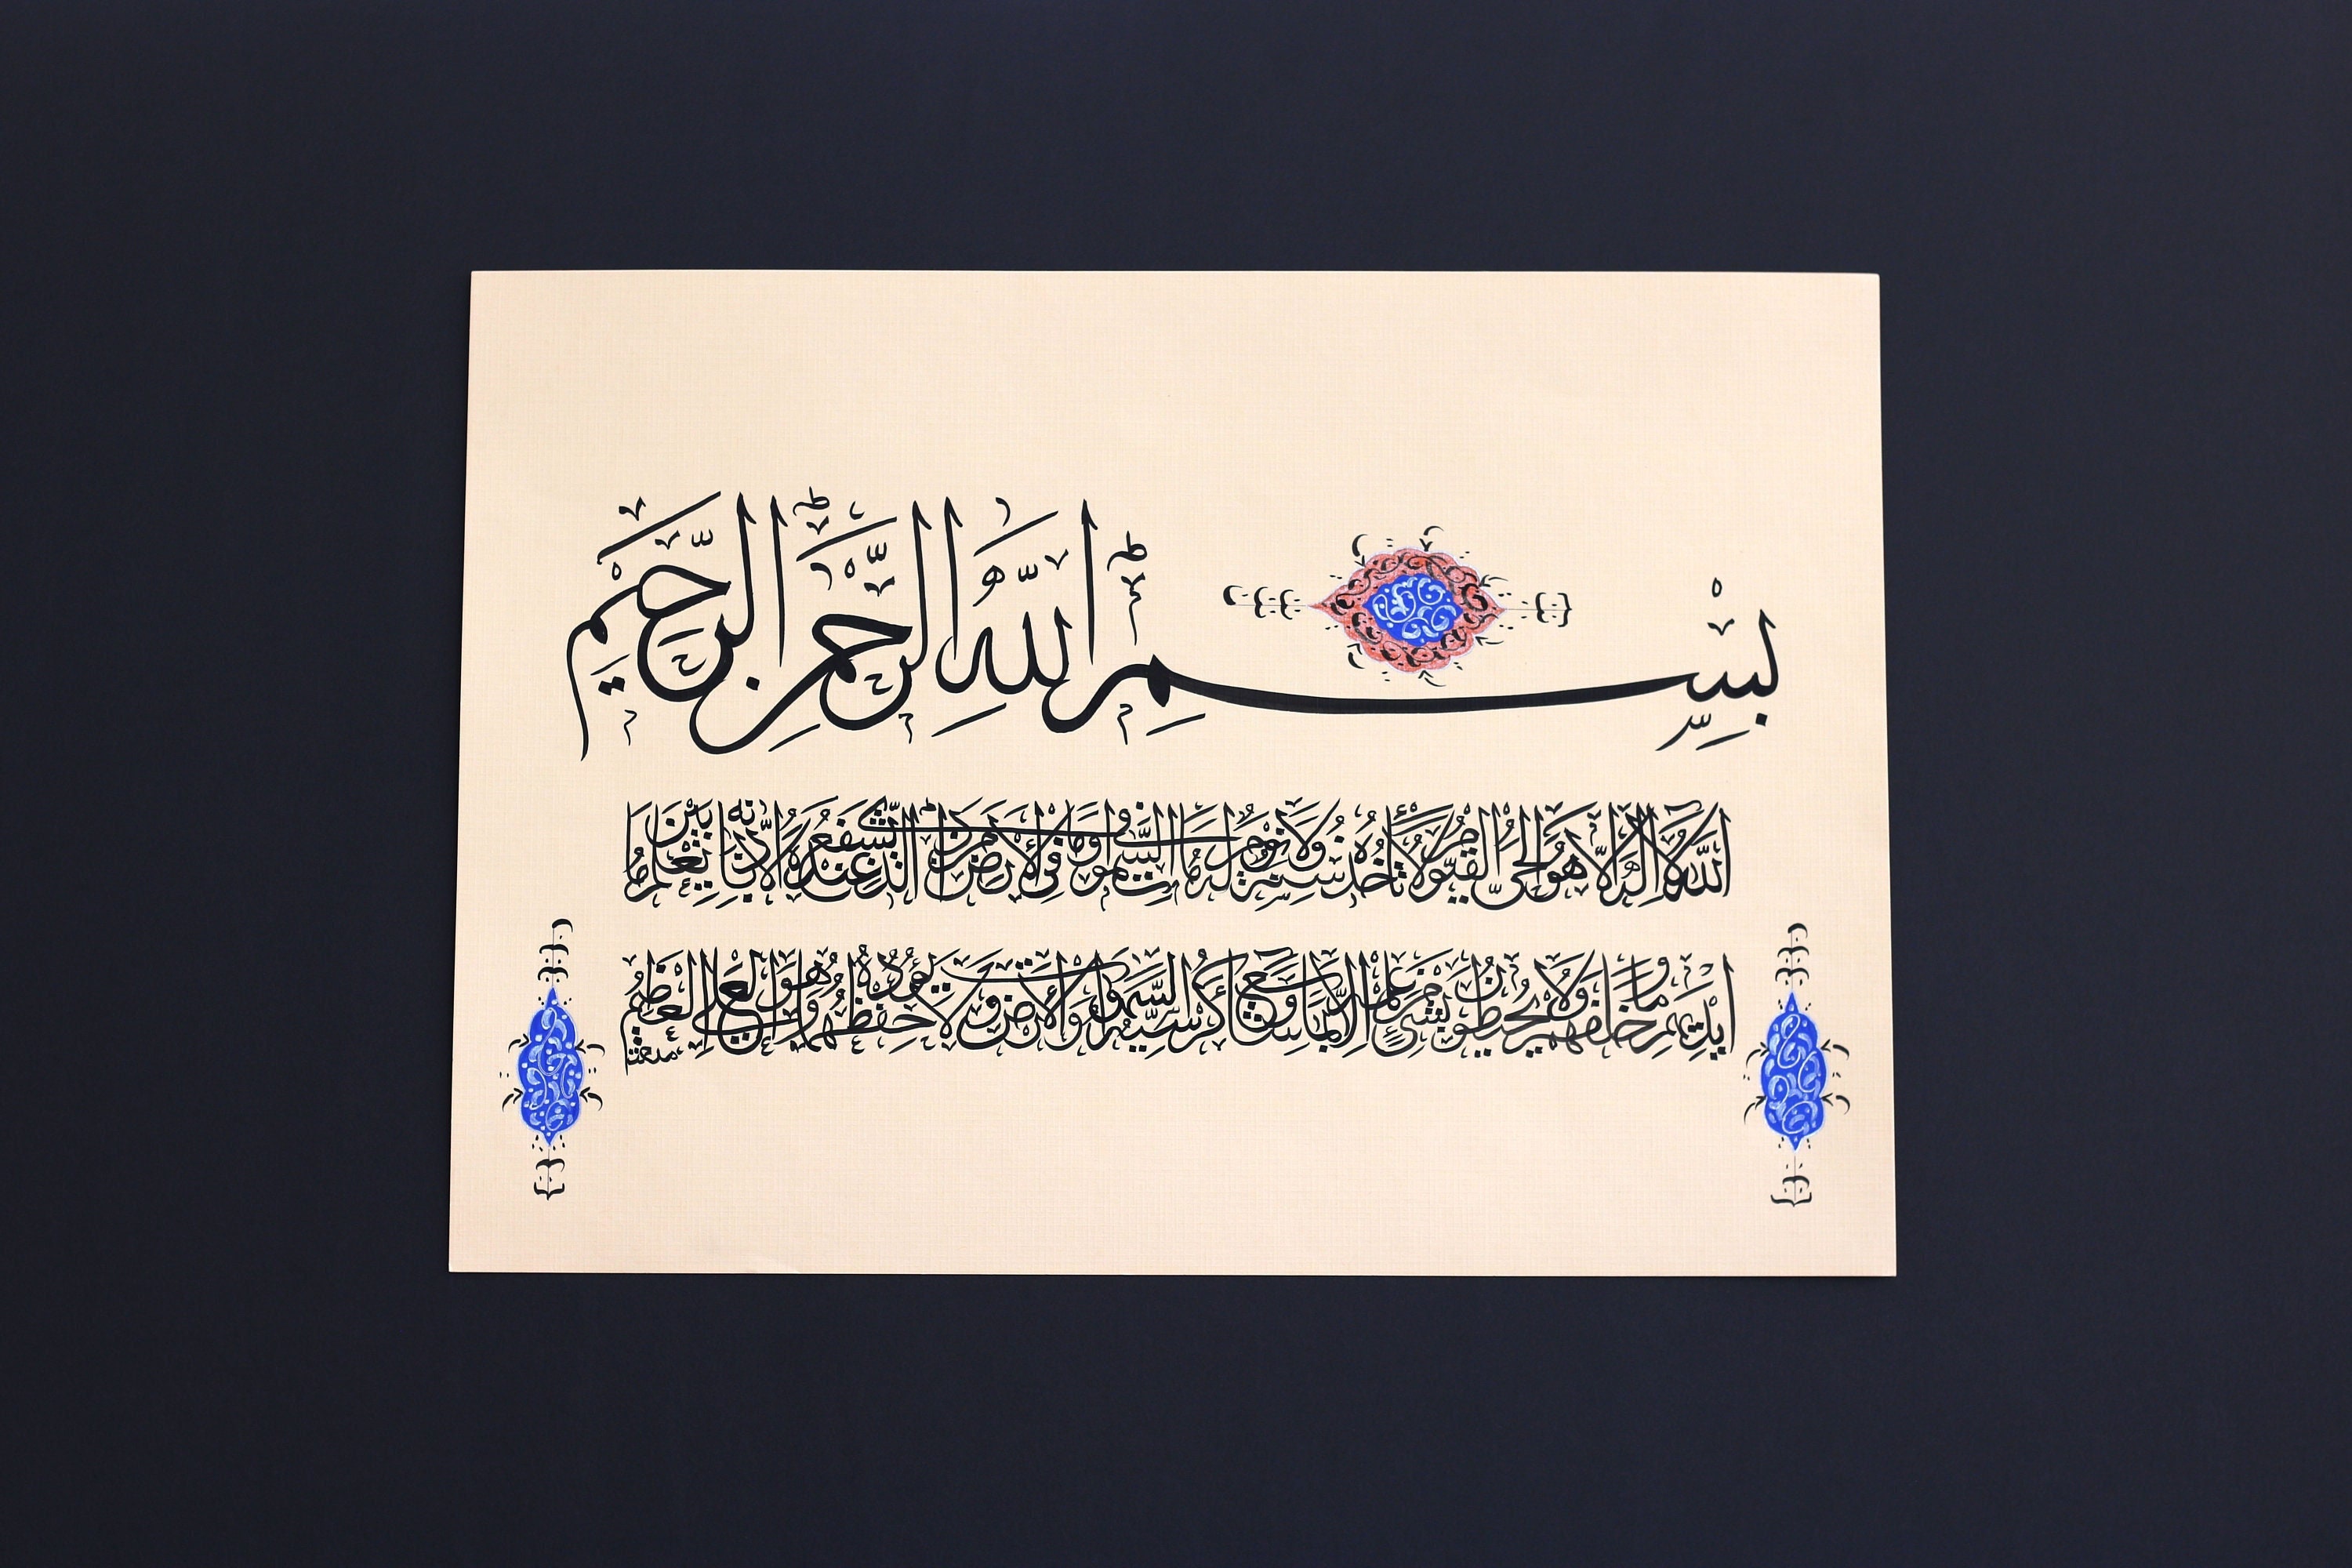 بِسْمِ اللَّهِ الرَّحْمَنِ الرَّحِيمِ
اللَّهُ لَا إِلَهَ إِلَّا هُوَ الْحَيُّ الْقَيُّومُ لَا تَأْخُذُهُ سِنَةٌ وَلَا نَوْمٌ لَهُ مَا فِي السَّمَوَاتِ وَمَا فِي الْأَرْضِ مَنْ ذَا الَّذِي يَشْفَعُ عِنْدَهُ إِلَّا بِإِذْنِهِ يَعْلَمُ مَا بَيْنَ
أَيْدِيهِمْ وَمَا خَلْفَهُمْ وَلَا يُحِيطُونَ بِشَيْءٍ مِنْ عِلْمِهِ إِلَّا بِمَا شَاءَ وَسِعَ كُرْسِيُّهُ السَّمَوَاتِ وَالْأَرْضَ وَلَا يَئُودُهُ حِفْظُهُمَا وَهُوَ الْعَلِيُّ الْعَظِيمُ